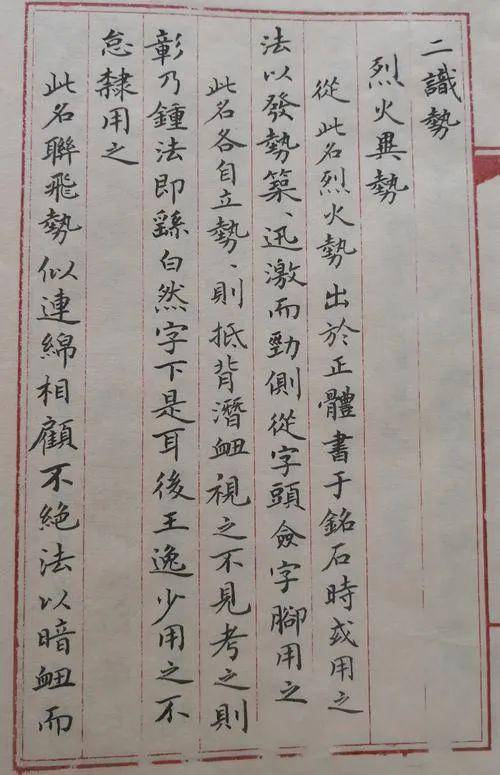 二識勢
烈火異勢
從此名烈火勢出於正體書于銘石時或用之
法以發勢築、迅激而勁側從字頭僉字腳用之
此名各自立勢、則抵背潛衄視之不見考之則
彰乃鍾法即繇白然字下是耳後王逸少用之不
怠隸用之
此名聯飛勢似連綿相顧不絶法以暗衄而